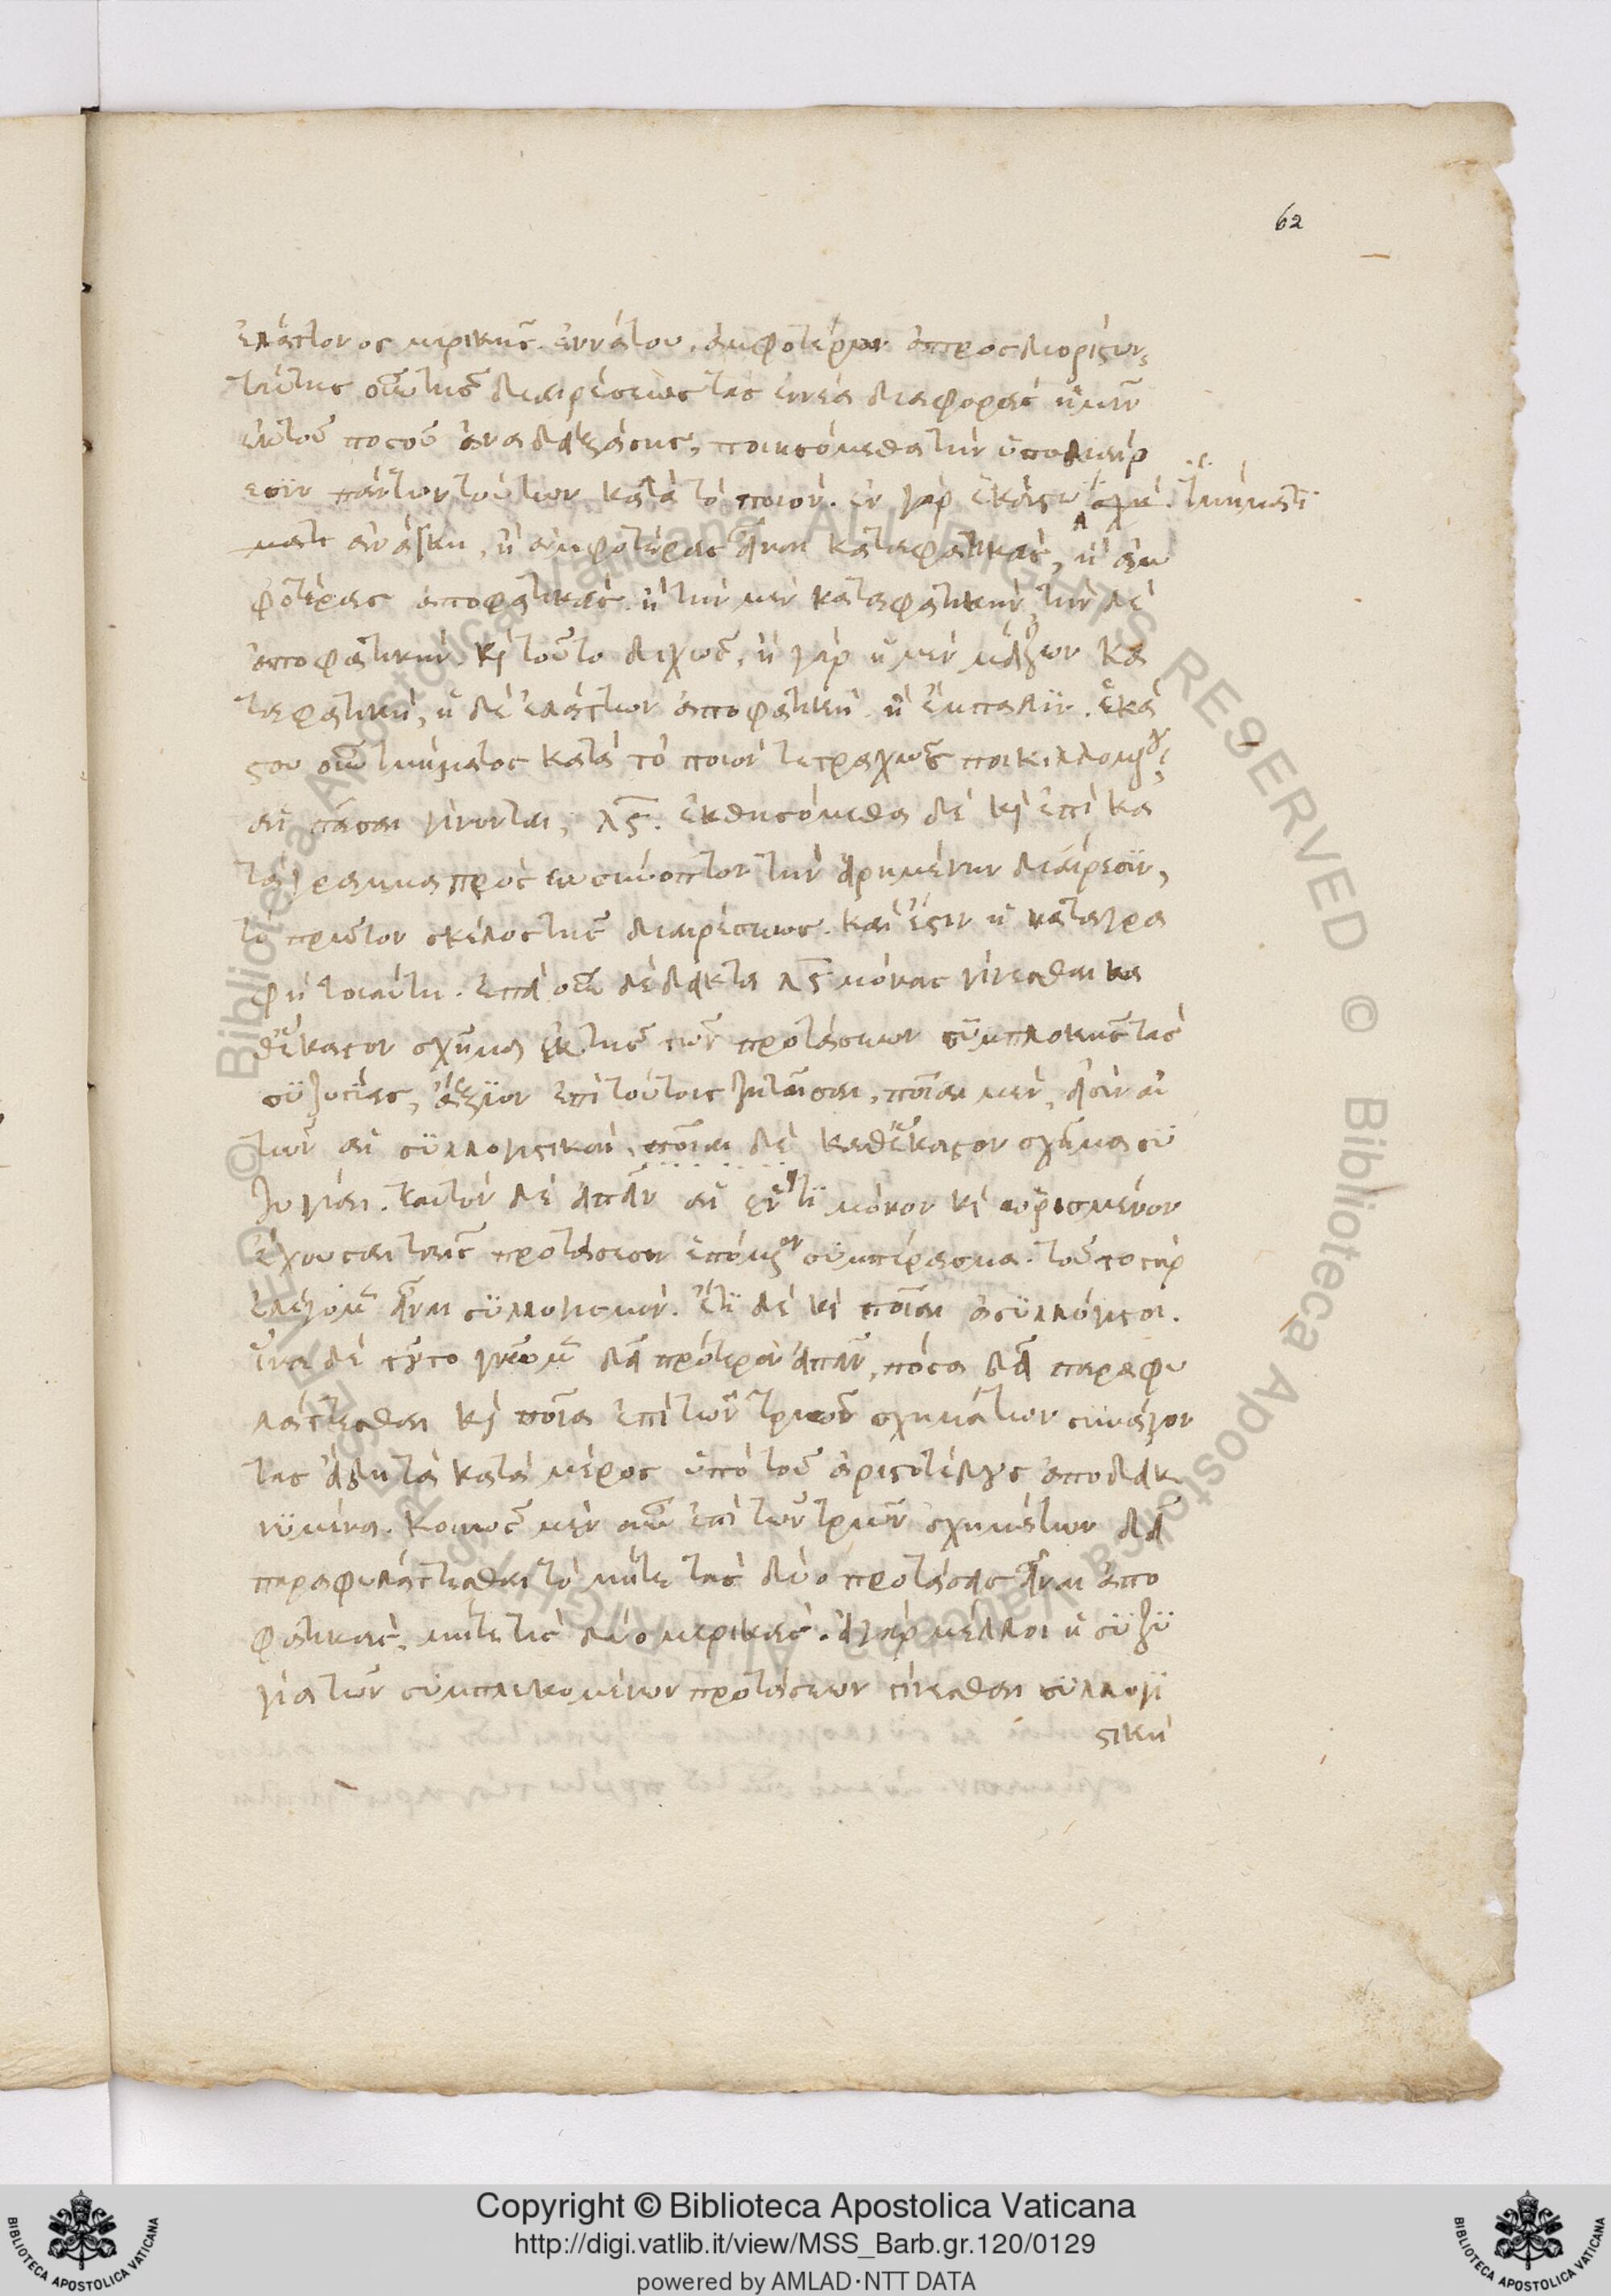 62
ἐλάττονος μερικῆς. ἐννάτου, ἀμφοτέρων ἀπροσδιορίστων,
ταύτης οὖν τῆς διαιρέσεως τὰς ἐννέα διαφορὰς ἡμῖν
ἐκ τοῦ ποσοῦ ἀναδειξάσης, ποιησόμεθα τὴν ὑποδιαίρ
εσιν πάντων τούτων κατὰ τὸ ποιόν. ἐν γὰρ ἑκάστω σχή τμήματι
ματι ἀνάγκη, ἢ ἀμφοτέρας εἶναι καταφατικὰς, ἢ ἀμ
φοτέρας ἀποφατικάς. ἢ τὴν μὲν καταφατικὴν, τὴν δὲ
ἀποφατικήν. κὶ τοῦτο διχῶς, ἢ γὰρ ἡ μὲν μείζων κα
ταφατική, ἡ δὲ ἐλάττων ἀποφατική. ἢ ἔμπαλιν. ἑκά
στου οὖν τμήματος κατὰ τὸ ποιὸν τετραχῶς ποικιλλομένου,
αἱ πᾶσαι γίνονται, λϛ. ἐκθησόμεθα δὲ κὶ ἐπὶ κα
ταγράμμα πρὸς εὐσύνοπτον τὴν εἰρημένην διαίρεσιν,
τὸ πρῶτον σκέλος τῆς διαιρέσεως. καὶ ἔστιν ἡ καταγρα
φὴ τοιαύτη. ἐπεὶ οὖν δέδεικται λϛ μόνας γίνεσθαι κα
θ' ἕκαστον σχῆμα ἐκ τῆς τῶν προτάσεων συμπλοκῆς τὰς
συζυγίας, ἄξιον ἐπὶ τούτοις ζητῆσαι, ποῖαι μέν, εἰσὶν αὐ
τῶν αἱ συλλογιστικαὶ, ποῖαι δὲ καθ' ἕκαστον σχῆμα συ
ζυγίαι. ταυτὸν δὲ εἰπεῖν αἱ ἕν τι μόνον κὶ ὡρισμένον
ἔχουσαι ταῖς προτάσεσιν ἑπόμενον συμπέρασμα. τοῦτο γὰρ
ἐλέγομεν εἶναι συλλογισμόν. ἔτι δὲ κὶ ποῖαι ἀσυλλόγιστοι.
ἵνα δὲ τοῦτο γνῶμεν δεῖ πρότερον εἰπεῖν, πόσα δεῖ παραφυ
λάττεσθαι κὶ ποῖα ἐπὶ τῶν τριῶν σχημάτων συνάγον
τας εἰς τὰ κατὰ μέρος ὑπὸ τοῦ ἀριστοτέλους ἀποδεικ
νύμενα. κοινῶς μὲν οὖν ἐπὶ τῶν τριῶν σχημάτων δεῖ
παραφυλάττεσθαι τὸ μήτε τὰς δύο προτάσεις εἶναι ἀπο
φατικὰς, μήτε τὰς δύο μερικάς. εἰ γὰρ μέλλοι ἡ συζυ
γία τῶν συμπλεκομένων προτάσεων γίνεσθαι συλλογι
στικὴ
Copyright © Biblioteca Apostolica Vaticana
http://digi.vatlib.it/view/MSS_Barb.gr.120/0129
powered by AMLAD·NTT DATA